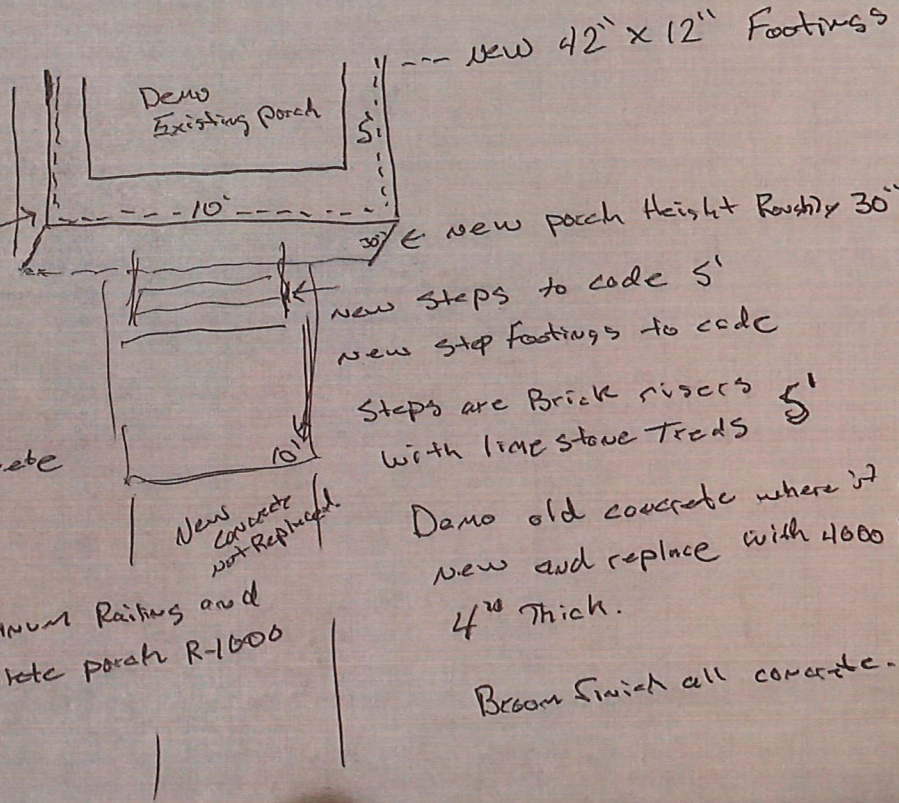 --- New 42" x 12" Footings
Demo
Existing porch
5'
10'
30"
← New porch Height Roughly 30"
New Steps to code 5'
New Step Footings to code
Steps are Brick risers
with lime stone Treds 5'
10'
New
concrete
not Replaced.
Demo old concrete where
new and replace with 4000
4" Thick.
Railing and
porch R-1000
Broom finish all concrete.